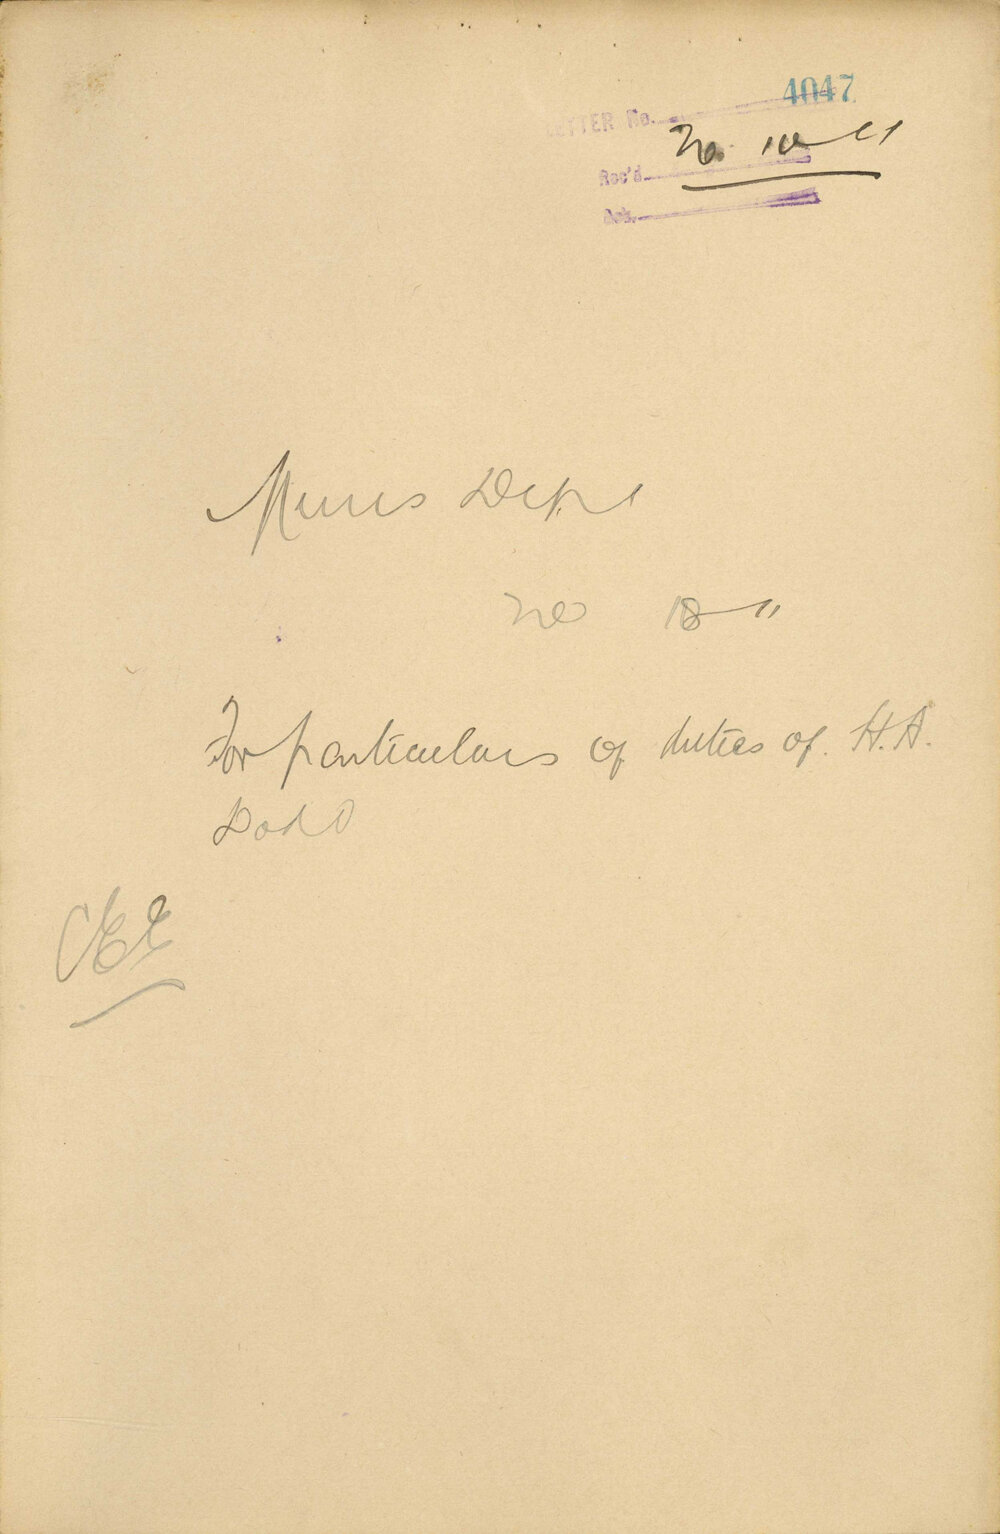 4047
LETTER No.
Rec'd
Ack.
Mines Dept
For particulars of duties of H.A.
Dodd